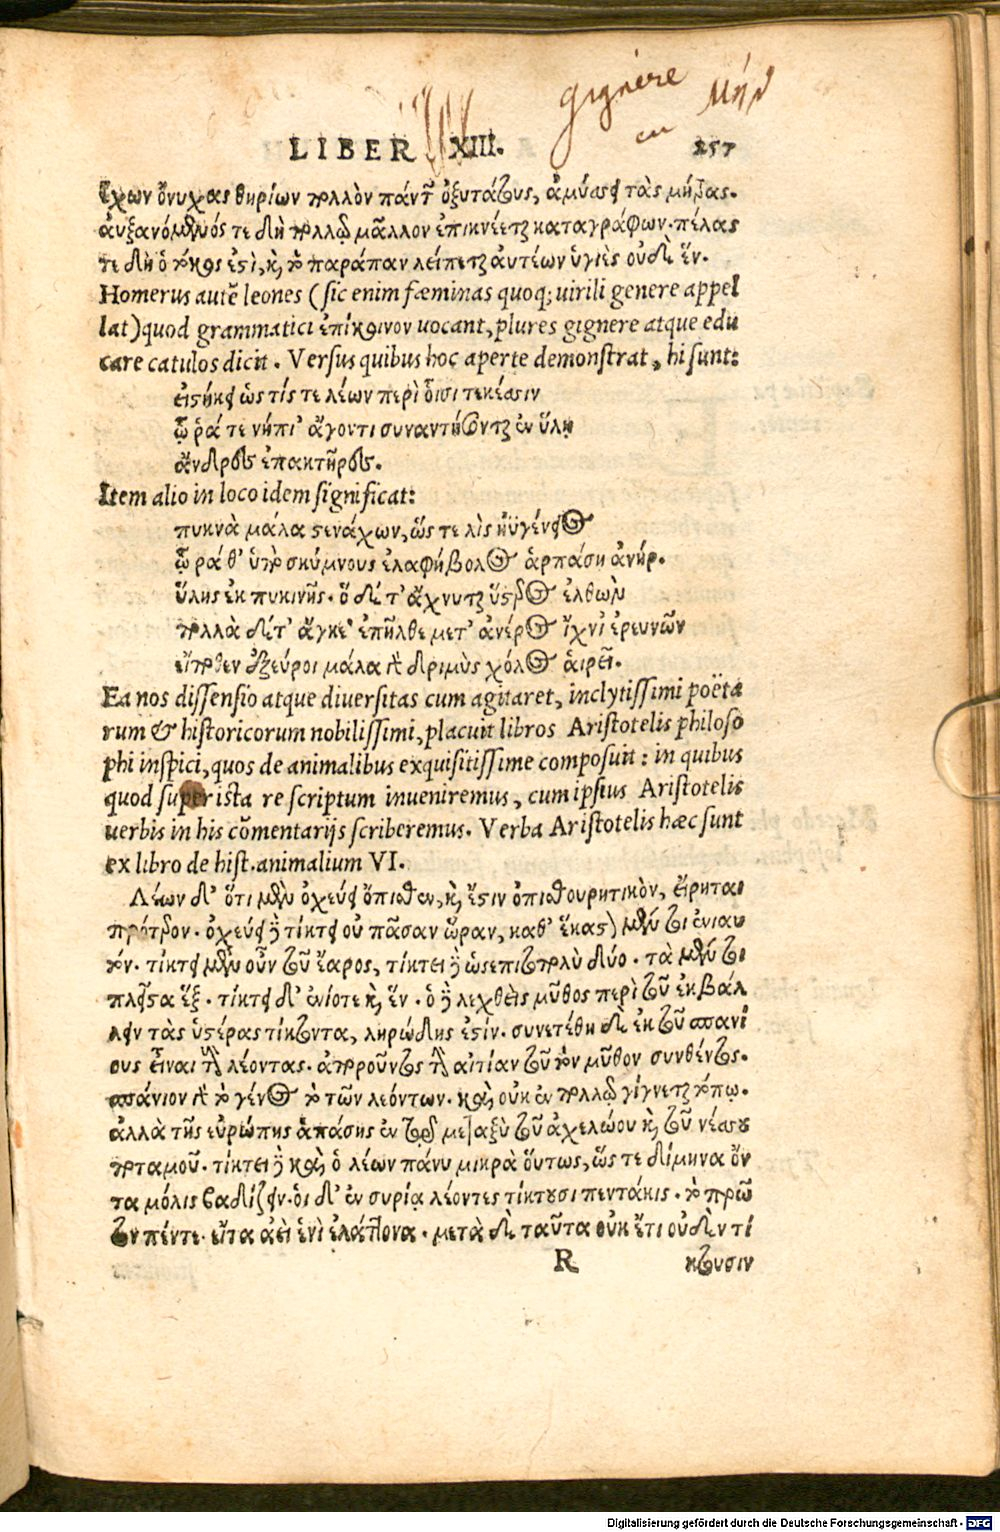 gignere
LIBER XIII. 257
ἔχων ὄνυχας θηρίων πολλὸν πάντων ὀξυτάτους, ἀμύσσει τὰς μήτρας.
αὐξανόμενός τε δὴ πολλῷ μᾶλλον ἐπικνέεται καταγράφων. πέλας
τε δὴ ὁ τόκος ἐςὶ, καὶ τὸ παράπαν λείπεται αὐτέων ὑγιὲς οὐδὲ ἕν.
Homerus autẽ leones (sic enim fæminas quoq; uirili genere appel
lat) quod grammatici ἐπίκοινον uocant, plures gignere atque edu
care catulos dicit. Versus quibus hoc aperte demonstrat, hi sunt:
εἱςήκει ὥς τίς τε λέων περὶ οἷσι τεκέεσιν
ᾧ ῥά τε νήπι' ἄγοντι συναντήσονται ἐν ὕλῃ
ἄνδρες ἐπακτῆρες.
Item alio in loco idem significat:
πυκνὰ μάλα ςενάχων, ὥς τε λὶς ἠϋγένειος
ᾧ ῥά θ' ὑπὸ σκύμνους ἐλαφηβόλος ἁρπάσῃ ἀνήρ.
ὕλης ἐκ πυκινῆς. ὁ δέ τ' ἄχνυται ὕςερος ἐλθὼν
πολλὰ δέ τ' ἄγκε' ἐπῆλθε μετ' ἀνέρος ἴχνι' ἐρευνῶν
εἴποθεν ἐξεύροι μάλα γὰρ δριμὺς χόλος αἱρεῖ.
Ea nos dissensio atque diuersitas cum agitaret, inclytissimi poëta
rum & historicorum nobilissimi, placuit libros Aristotelis philoso
phi inspici, quos de animalibus exquisitissime composuit: in quibus
quod super ista re scriptum inueniremus, cum ipsius Aristotelis
uerbis in his cõmentarijs scriberemus. Verba Aristotelis hæc sunt
ex libro de hist. animalium VI.
Λέων δ' ὅτι μὲν ὀχεύει ὄπισθεν, καὶ ἔςιν ὀπισθουρητικὸν, εἴρηται
πρότερον. ὀχεύει δὲ τίκτει οὐ πᾶσαν ὥραν, καθ' ἕκαςον μέν τοι ἐνιαυ
τόν. τίκτει μὲν οὖν τοῦ ἔαρος, τίκτει δὲ ὡς ἐπιτοπολὺ δύο. τὰ μέν τοι
πλεῖςα ἕξ. τίκτει δ' ἐνίοτε καὶ ἕν. ὁ δὲ λεχθεὶς μῦθος περὶ τοῦ ἐκβάλ
λειν τὰς ὑςέρας τίκτοντα, ληρώδης ἐςίν. συνετέθη δὲ ἐκ τοῦ σπανί
ους εἶναι τοὺς λέοντας. ἀποροῦντος τὴν αἰτίαν τοῦ τὸν μῦθον συνθέντος.
σπάνιον γὰρ τὸ γένος τὸ τῶν λεόντων. καὶ οὐκ ἐν πολλῷ γίγνεται τόπῳ.
ἀλλὰ τῆς εὐρώπης ἁπάσης ἐν τῷ μεταξὺ τοῦ ἀχελώου καὶ τοῦ νέσσου
ποταμοῦ. τίκτει δὲ καὶ ὁ λέων πάνυ μικρὰ οὕτως, ὥς τε δίμηνα ὄν
τα μόλις βαδίζειν. οἱ δ' ἐν συρίᾳ λέοντες τίκτουσι πεντάκις. τὸ πρῶ
τον πέντε. εἶτα ἀεὶ ἑνὶ ἐλάττονα. μετὰ δὲ ταῦτα οὐκ ἔτι οὐδὲν τί
R κτουσιν
Digitalisierung gefördert durch die Deutsche Forschungsgemeinschaft - DFG